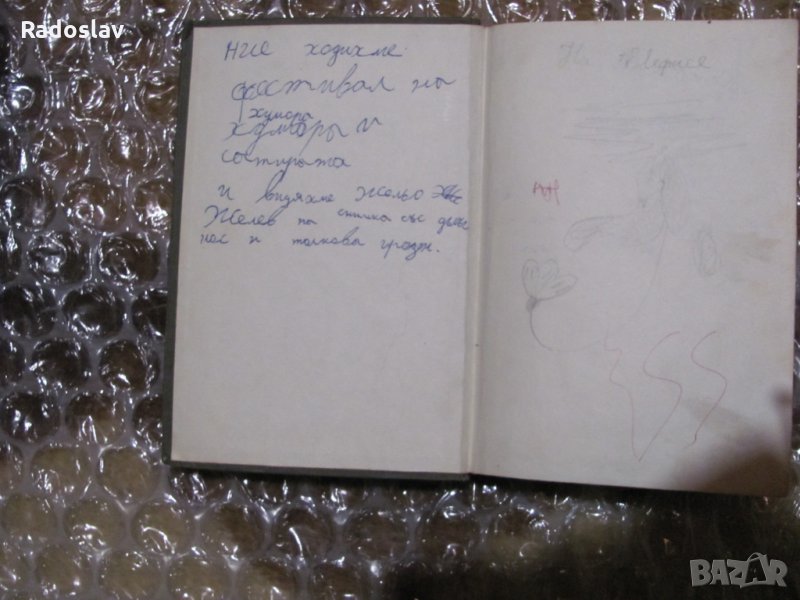 Radoslav
ние ходихме
фестивал на
хумора
хуморъ и
сатирата
и видяхме Жельо
Желев на снимка със дълъг
нос и толкова грозен.
На
BAZAR